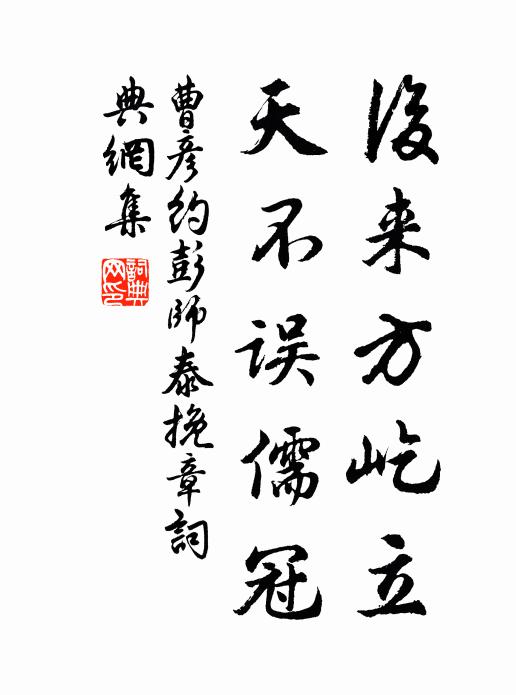 後来方屹立
天不误儒冠
曹彦约彭师泰挽章詞
典網集
詞典
网印